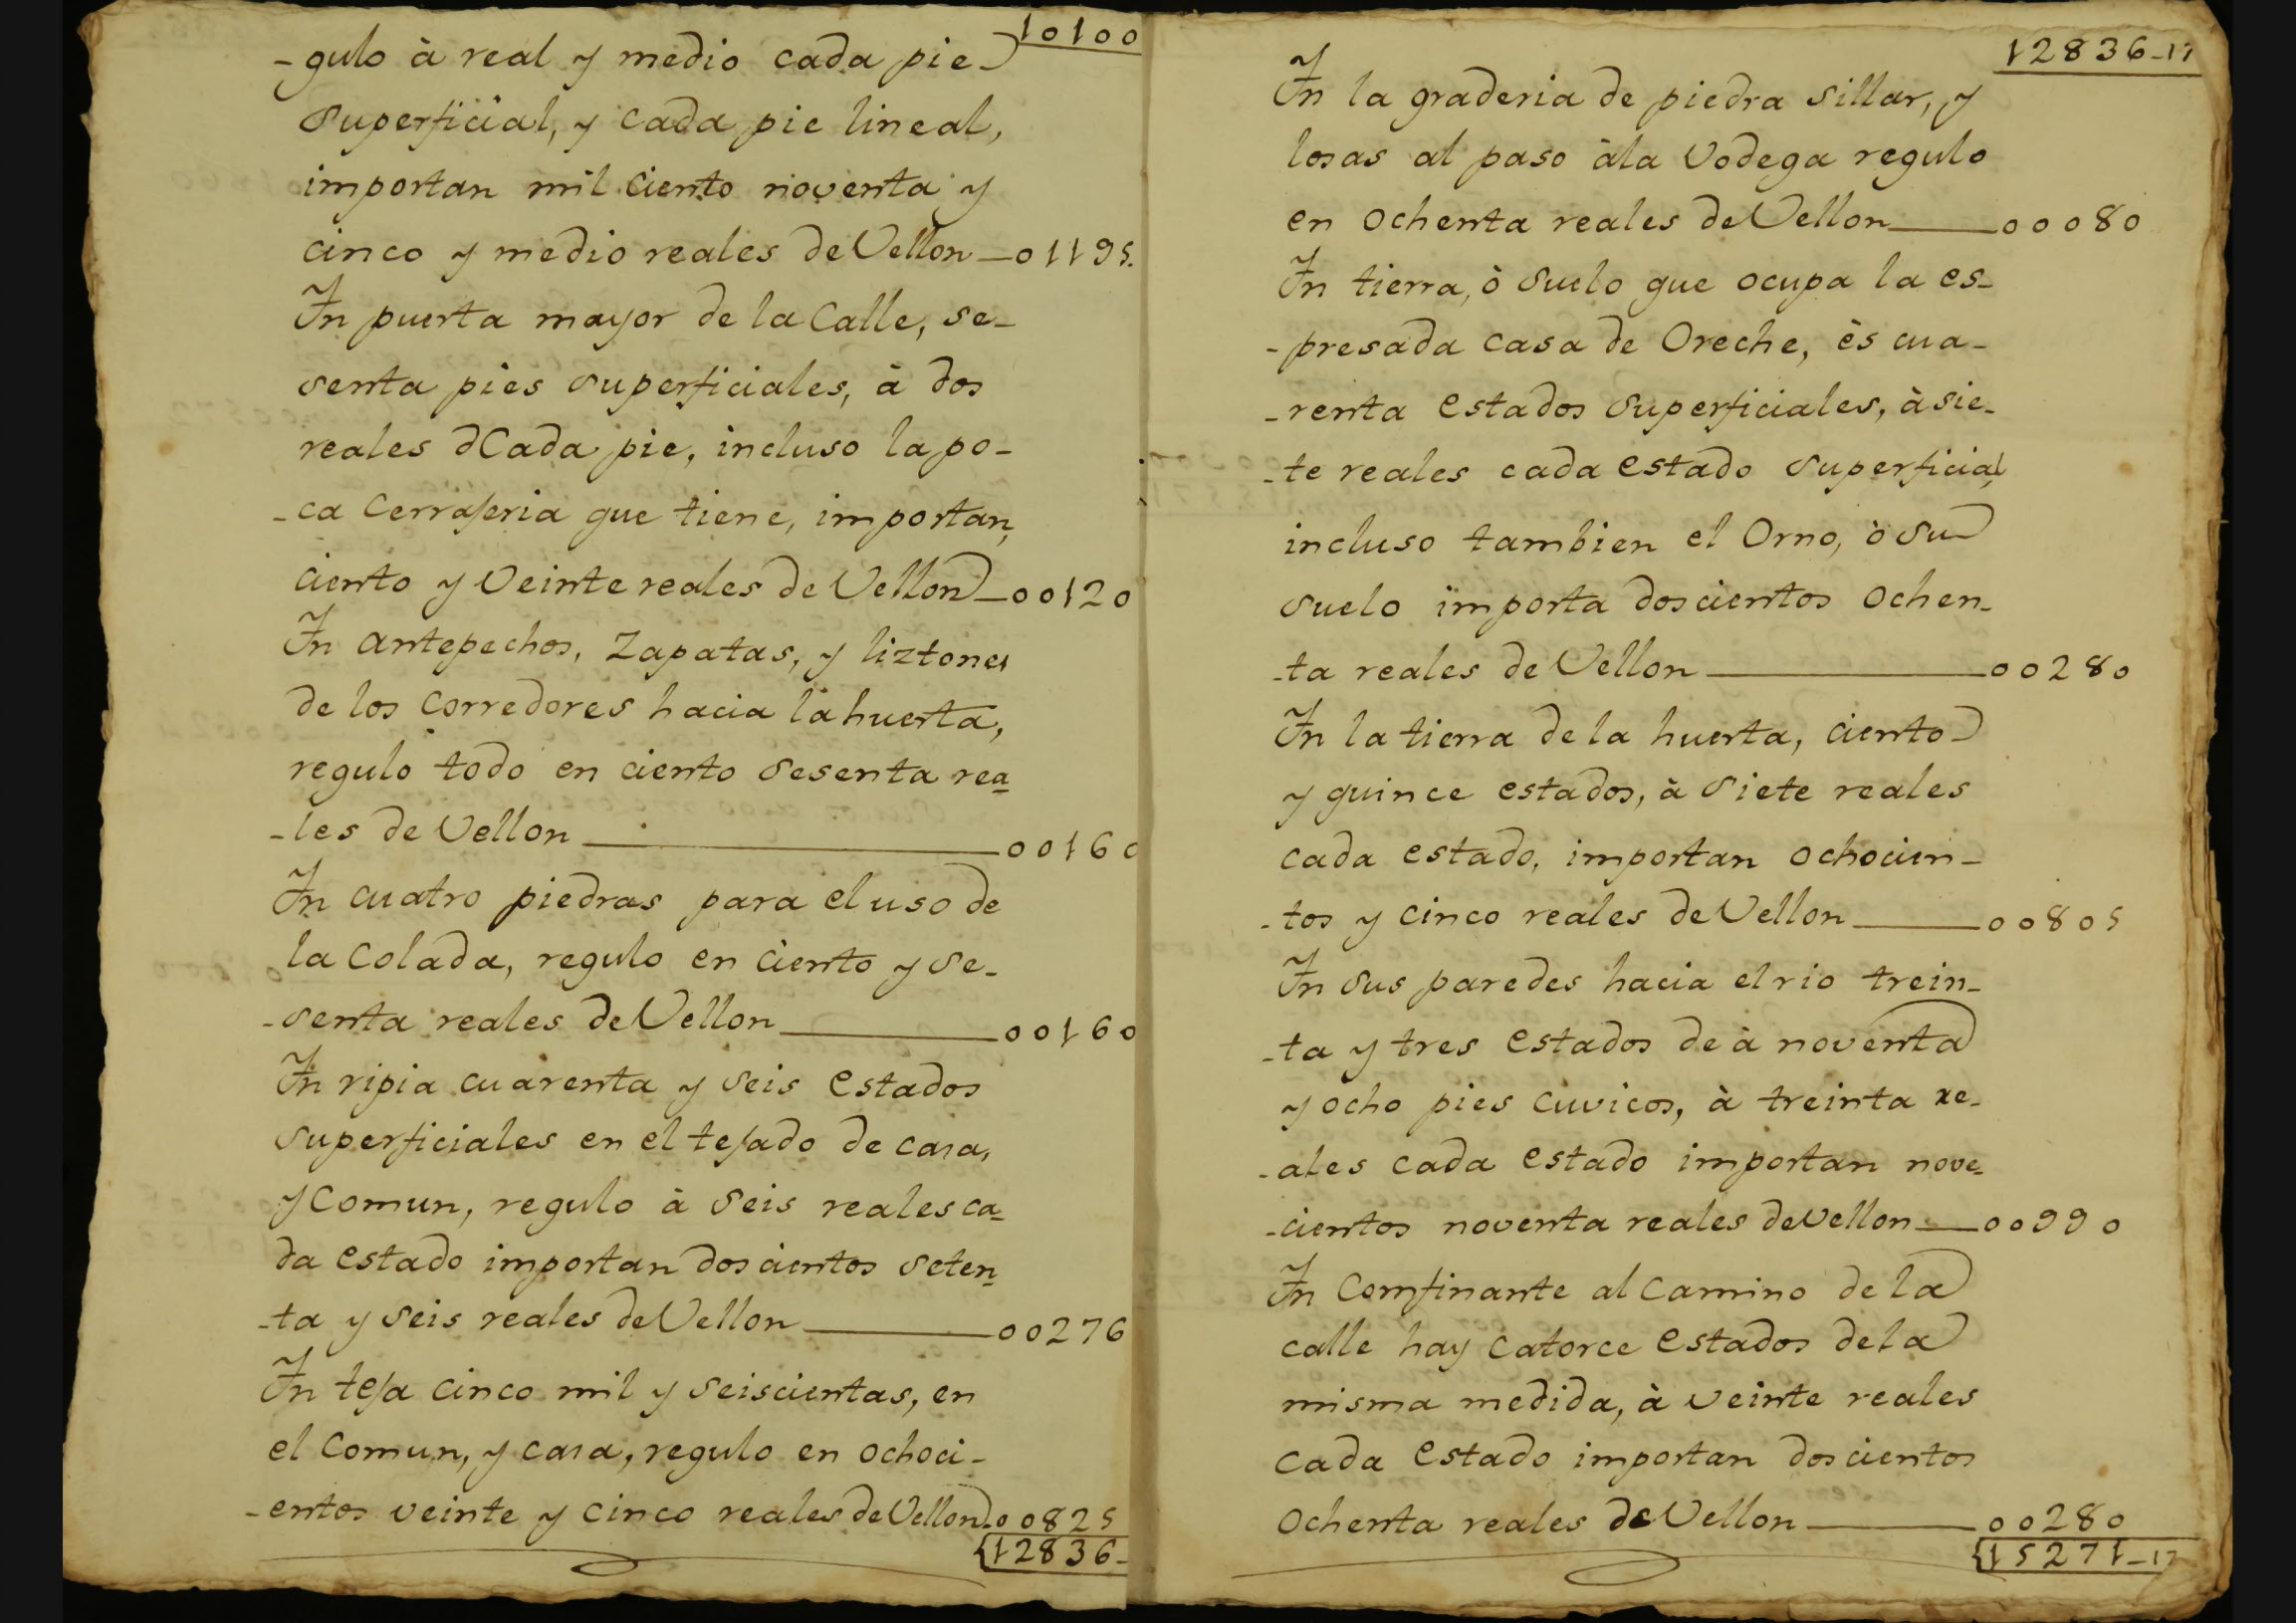 10100
-gulo à real y medio cada pie
superficial, y cada pie lineal,
importan mil ciento noventa y
cinco y medio reales de Vellon—01195.
Yn puerta mayor de la Calle, se-
senta pies superficiales, à dos
reales dCada pie, incluso la po-
-ca Cerrajeria que tiene, importan,
ciento y Veinte reales de Vellon—00120
Yn antepechos, Zapatas, y liztones
de los Corredores hacia la huerta,
regulo todo en ciento Sesenta rea
-les de Vellon—00160
Yn cuatro piedras para el uso de
la Colada, regulo en ciento y se-
-senta reales de Vellon—00160
Yn ripia cuarenta y seis estados
superficiales en el tejado de casa,
y Comun, regulo à seis reales ca-
da estado importan doscientos seten
-ta y seis reales de Vellon—00276
Yn teja cinco mil y seiscientas, en
el Comun, y casa, regulo en ochoci-
-entos veinte y cinco reales de Vellon.00825
12836-
12836-17
Yn la graderia de piedra sillar, y
losas al paso àla Vodega regulo
en ochenta reales de Vellon—00080
Yn tierra, ò suelo que ocupa la es-
-presada casa de Oreche, ès cua-
-renta estados superficiales, à sie-
-te reales cada estado superficial,
incluso tambien el Orno, ò su
suelo importa doscientos ochen-
-ta reales de Vellon—00280
Yn la tierra de la huerta, ciento
y quince estados, à siete reales
cada estado, importan ochocien-
-tos y cinco reales de Vellon—00805
Yn sus paredes hacia el rio trein-
-ta y tres estados de à noventa
y ocho pies cuvicos, à treinta re-
-ales cada estado importan nove-
-cientos noventa reales de vellon—00990
Yn Comfinante al Camino de la
calle hay Catorce estados de la
misma medida, à veinte reales
cada estado importan doscientos
ochenta reales de Vellon—00280
15271-17